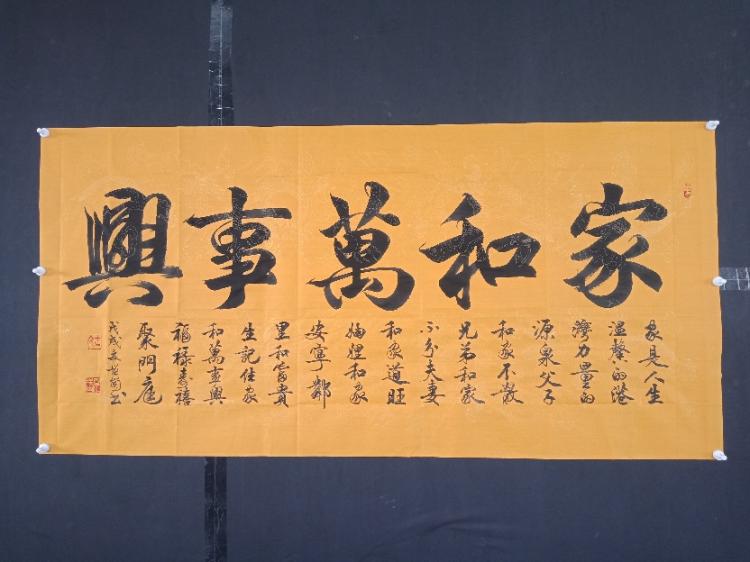 家和萬事興
家是人生
温馨的港
灣力量的
源泉父子
和家不散
兄弟和家
不分夫妻
和家道旺
妯娌和家
安寧鄰
里和富貴
生記住家
和萬事興
福祿壽禧
聚門庭
戊戌